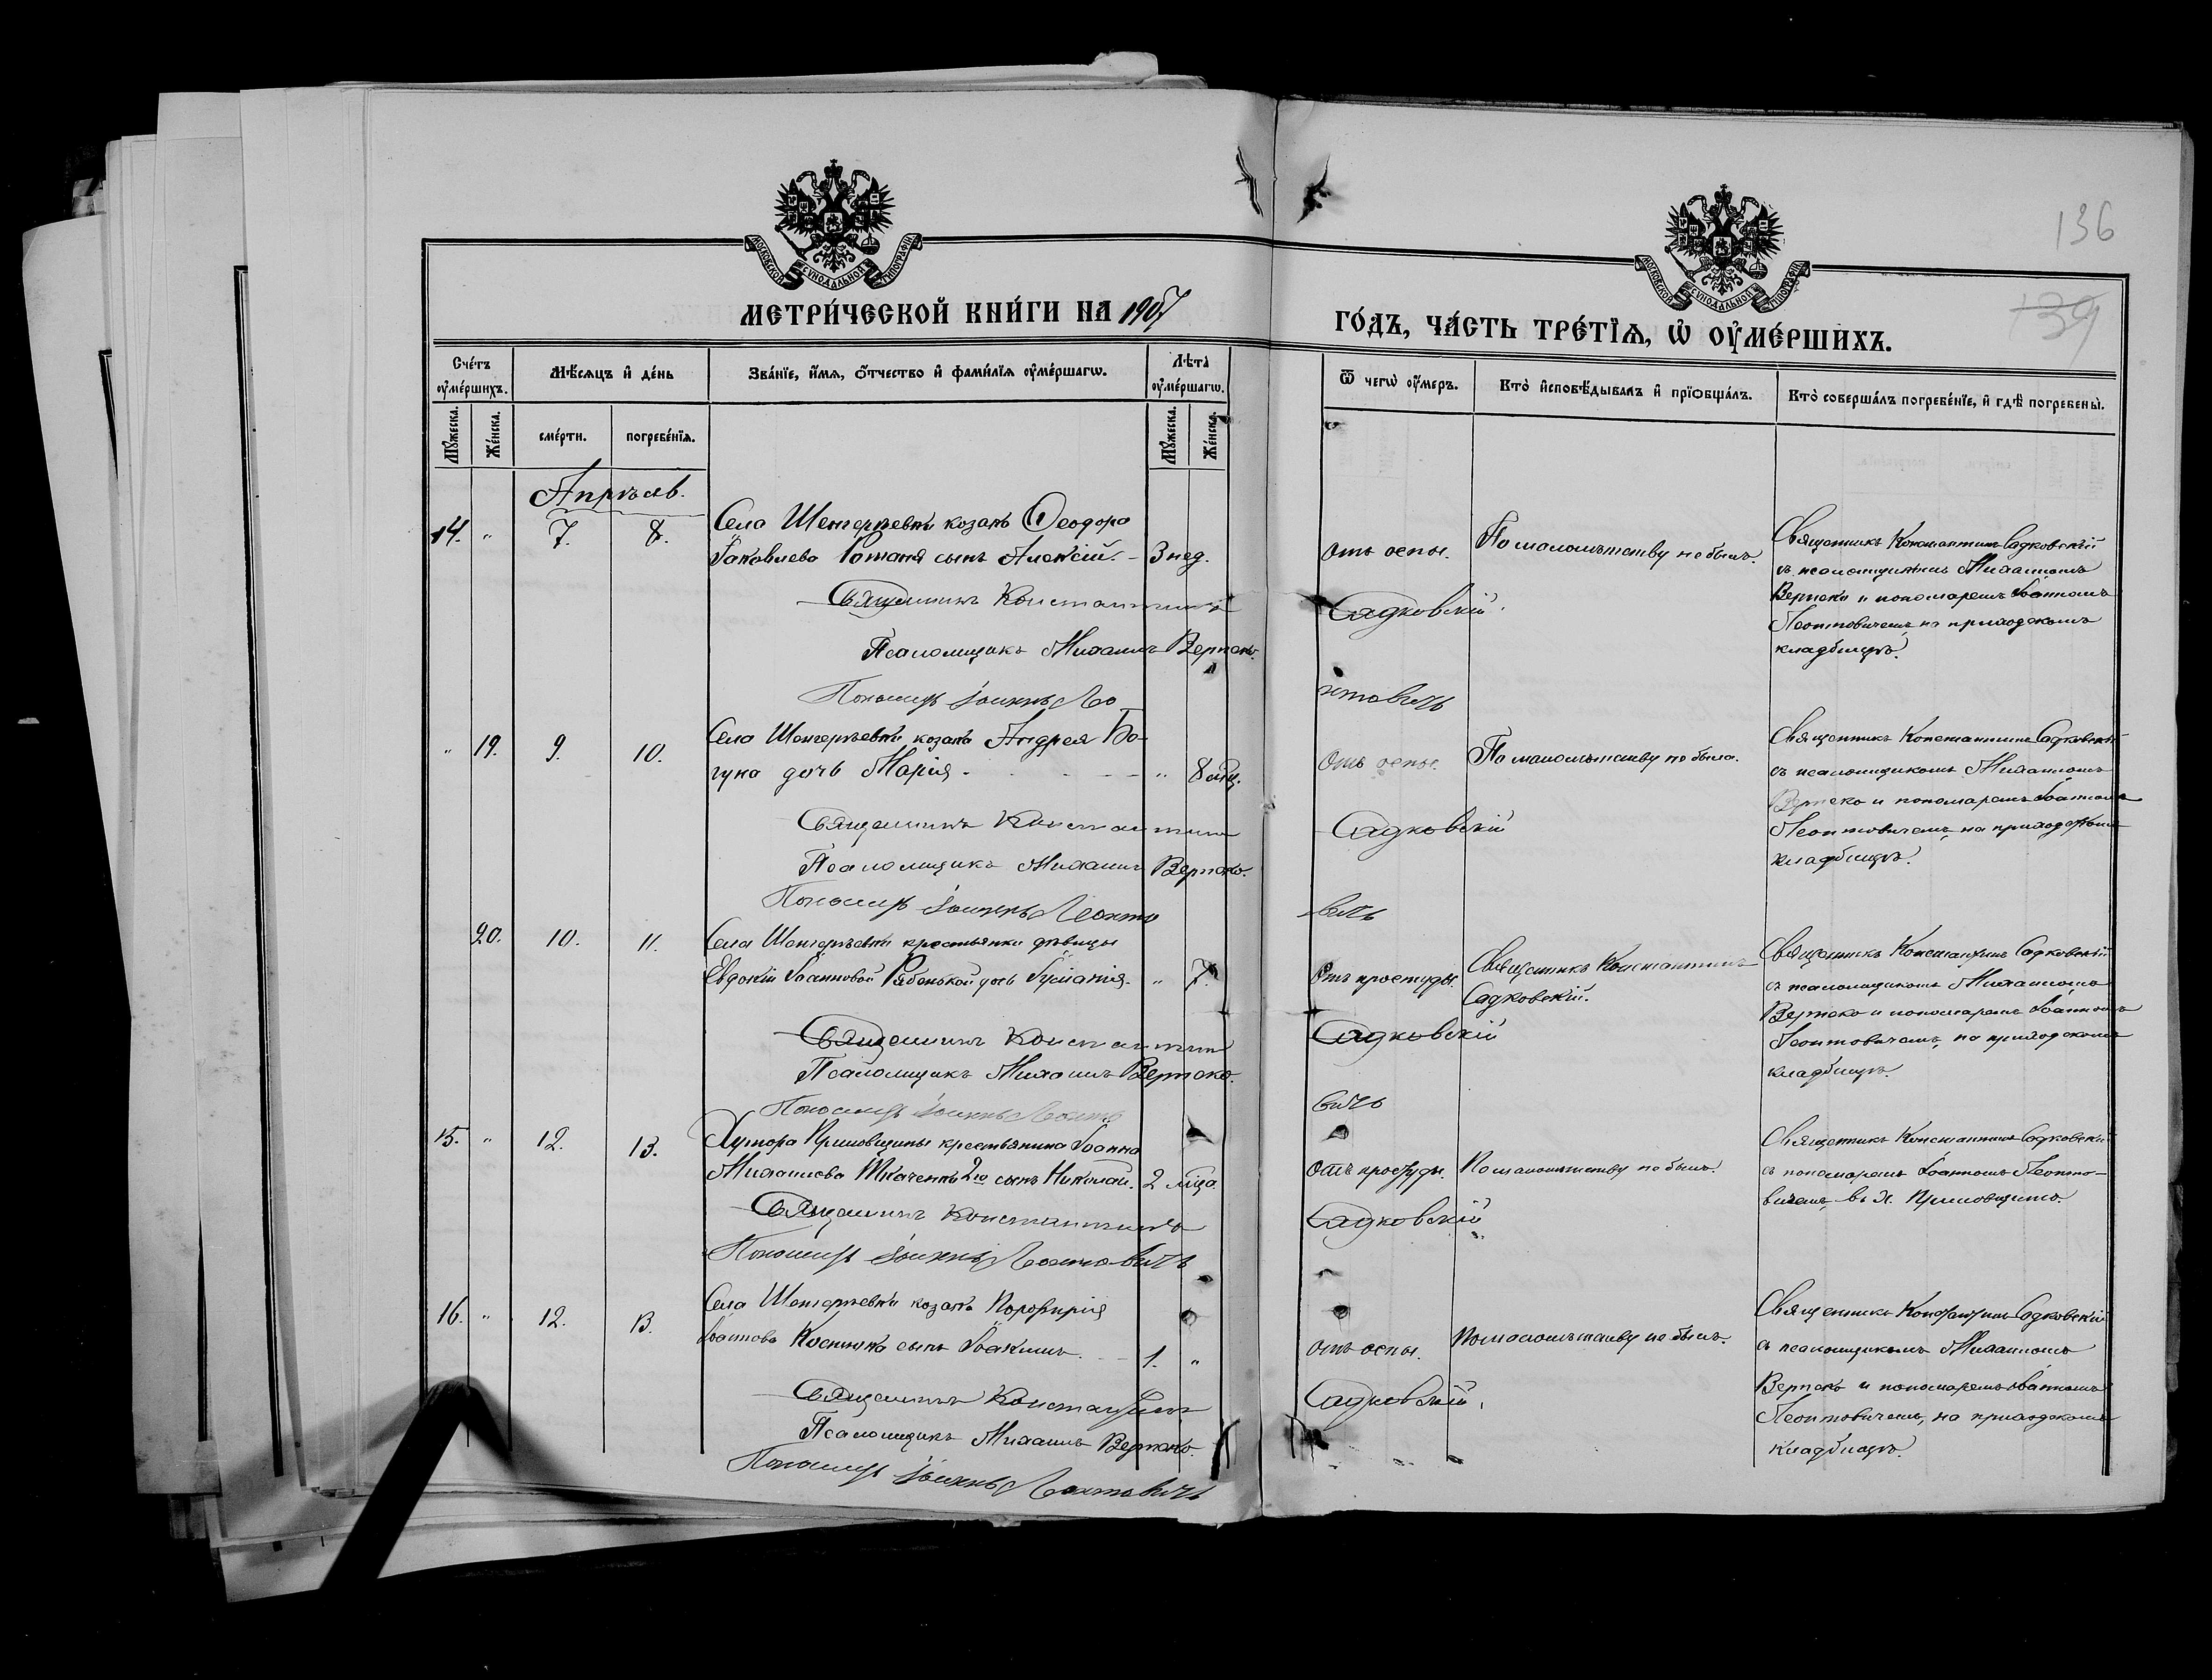 МОСКОВСКОЙ СѴНОДАЛЬНОЙ ТИПОГРАФІИ
МЕТРИ́ЧЕСКОЙ КНИ́ГИ НА 1907
Счетъ оумершихъ.
Мѣсяцъ и день
Званіе, имя, отчество и фамилія оумершагω.
Лѣта оумершагω.
Мужеска.
Женска.
смерти.
погребенія.
Мужеска.
Женска.
Апрѣль.
14. " 7. 8. Села козака Ѳеодора
Іаковлева сынъ Алексій. 3 нед.
Священникъ Константинъ
Псаломщикъ Михаилъ
Пономарь Іоаннъ Ле
" 19. 9. 10. Села козака Андрея Бо-
гуна дочь Марія. " 8 мѣц.
Священникъ Константинъ
Псаломщикъ Михаилъ
Пономарь Іоаннъ Леонто
20. 10. 11. Села крестьянки дѣвицы
Евдокіи Іоанновой Рябенькой дочь " 7.
Священникъ Константинъ
Псаломщикъ Михаилъ
Пономарь Іоаннъ Леонто
15. " 12. 13. Хутора крестьянина Іоанна
Михаилова Ткаченка 2го сынъ Николай. 2 мѣца.
Священникъ Константинъ
Пономарь Іоаннъ Леонтовичъ
16. " 12. 13. Села козака Порфирія
Іоаннова сынъ Іоакимъ 1. "
Священникъ Константинъ
Псаломщикъ Михаилъ
Пономарь Іоаннъ Леонтовичъ
136
139
МОСКОВСКОЙ СѴНОДАЛЬНОЙ ТИПОГРАФІИ
ГО́ДЪ, ЧА́СТЬ ТРЕ́ТІЯ, Ѡ ОУМЕ́РШИХЪ.
Ѿ чегω оумеръ.
Кто исповѣдывалъ и пріобщалъ.
Кто совершалъ погребеніе, и гдѣ погребены.
Отъ оспы. По малолѣтству не былъ. Священникъ Константинъ Садковскій
съ псаломщикомъ Михаиломъ
и пономаремъ Іоанномъ
Леонтовичемъ, на приходскомъ
кладбищѣ.
Садковскій.
нтовичъ
Отъ оспы. По малолѣтству не была. Священникъ Константинъ Садковскій
съ псаломщикомъ Михаиломъ
и пономаремъ Іоанномъ
Леонтовичемъ, на приходскомъ
кладбищѣ.
Садковскій
вичъ
Отъ простуды. Священникъ Константинъ
Садковскій.
Священникъ Константинъ Садковскій
съ псаломщикомъ Михаиломъ
и пономаремъ Іоанномъ
Леонтовичемъ, на приходскомъ
кладбищѣ.
Садковскій
вичъ
Отъ простуды. По малолѣтству не былъ. Священникъ Константинъ Садковскій
съ пономаремъ Іоанномъ Леонто-
вичемъ, въ х.
Садковскій
Отъ оспы. По малолѣтству не былъ. Священникъ Константинъ Садковскій
съ псаломщикомъ Михаиломъ
и пономаремъ Іоанномъ
Леонтовичемъ, на приходскомъ
кладбищѣ.
Садковскій.